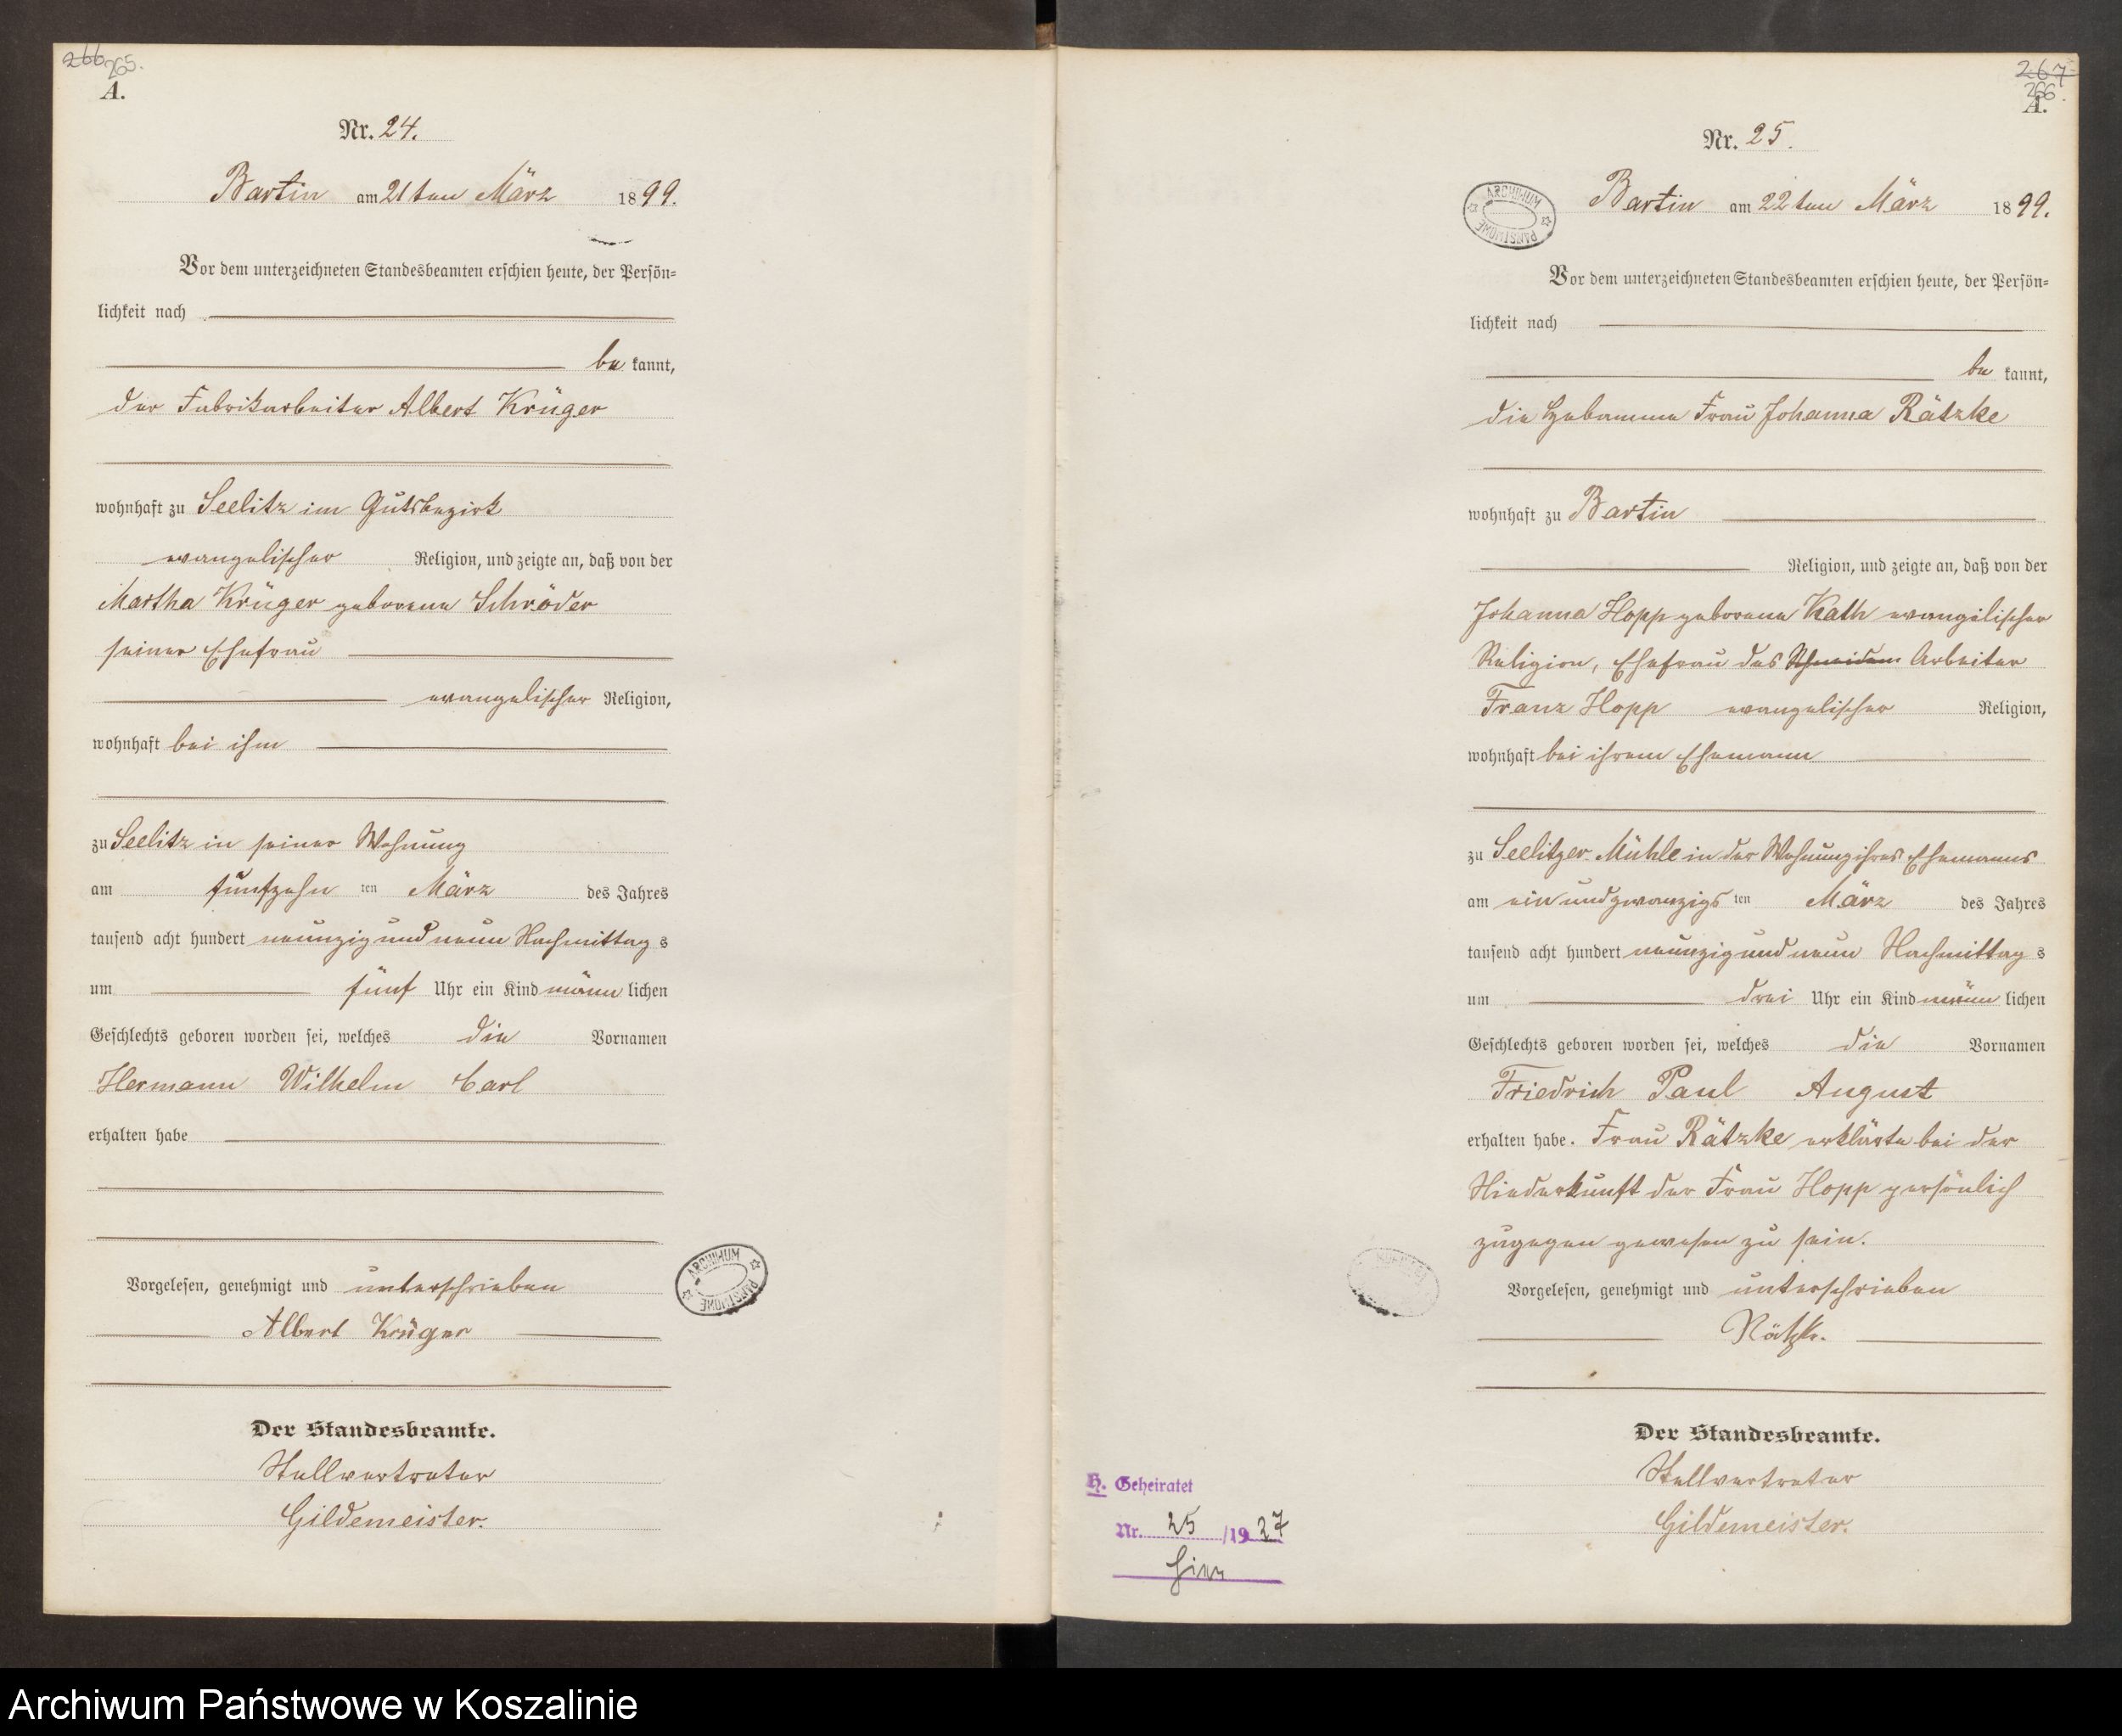 266 265.
A.
Nr. 24.
Bartin am 21ten März 1899.
Vor dem unterzeichneten Standesbeamten erschien heute, der Persön=
lichkeit nach
be kannt,
der Fabrikarbeiter Albert Krüger
wohnhaft zu Seelitz im Gutsbezirk
evangelischer Religion, und zeigte an, daß von der
Martha Krüger geborene Schröder
seiner Ehefrau
evangelischer Religion,
wohnhaft bei ihm
zu Seelitz in seiner Wohnung
am fünfzehn ten März des Jahres
tausend acht hundert neunzig und neun Nachmittag s
um fünf Uhr ein Kind männ lichen
Geschlechts geboren worden sei, welches die Vornamen
Hermann Wilhelm Carl
erhalten habe
Vorgelesen, genehmigt und unterschrieben
Albert Krüger
Der Standesbeamte.
Stellvertreter
Gildemeister.
ARCHIWUM PAŃSTWOWE
267
266.
A.
Nr. 25.
ARCHIWUM PAŃSTWOWE
Bartin am 22ten März 1899.
Vor dem unterzeichneten Standesbeamten erschien heute, der Persön=
lichkeit nach
be kannt,
die Hebamme Frau Johanna Rätzke
wohnhaft zu Bartin
Religion, und zeigte an, daß von der
Johanna Hopp geborene Kath evangelischer
Religion, Ehefrau des Arbeiter
Franz Hopp evangelischer Religion,
wohnhaft bei ihrem Ehemann
zu Seelitzer Mühle in der Wohnung ihres Ehemanns
am ein und zwanzigs ten März des Jahres
tausend acht hundert neunzig und neun Nachmittag s
um drei Uhr ein Kind männ lichen
Geschlechts geboren worden sei, welches die Vornamen
Friedrich Paul August
erhalten habe. Frau Rätzke erklärte bei der
Niederkunft der Frau Hopp persönlich
zugegen gewesen zu sein.
Vorgelesen, genehmigt und unterschrieben
Rätzke.
Der Standesbeamte.
Stellvertreter
Gildemeister.
H. Geheiratet
Nr. 25 /1927
Archiwum Państwowe w Koszalinie